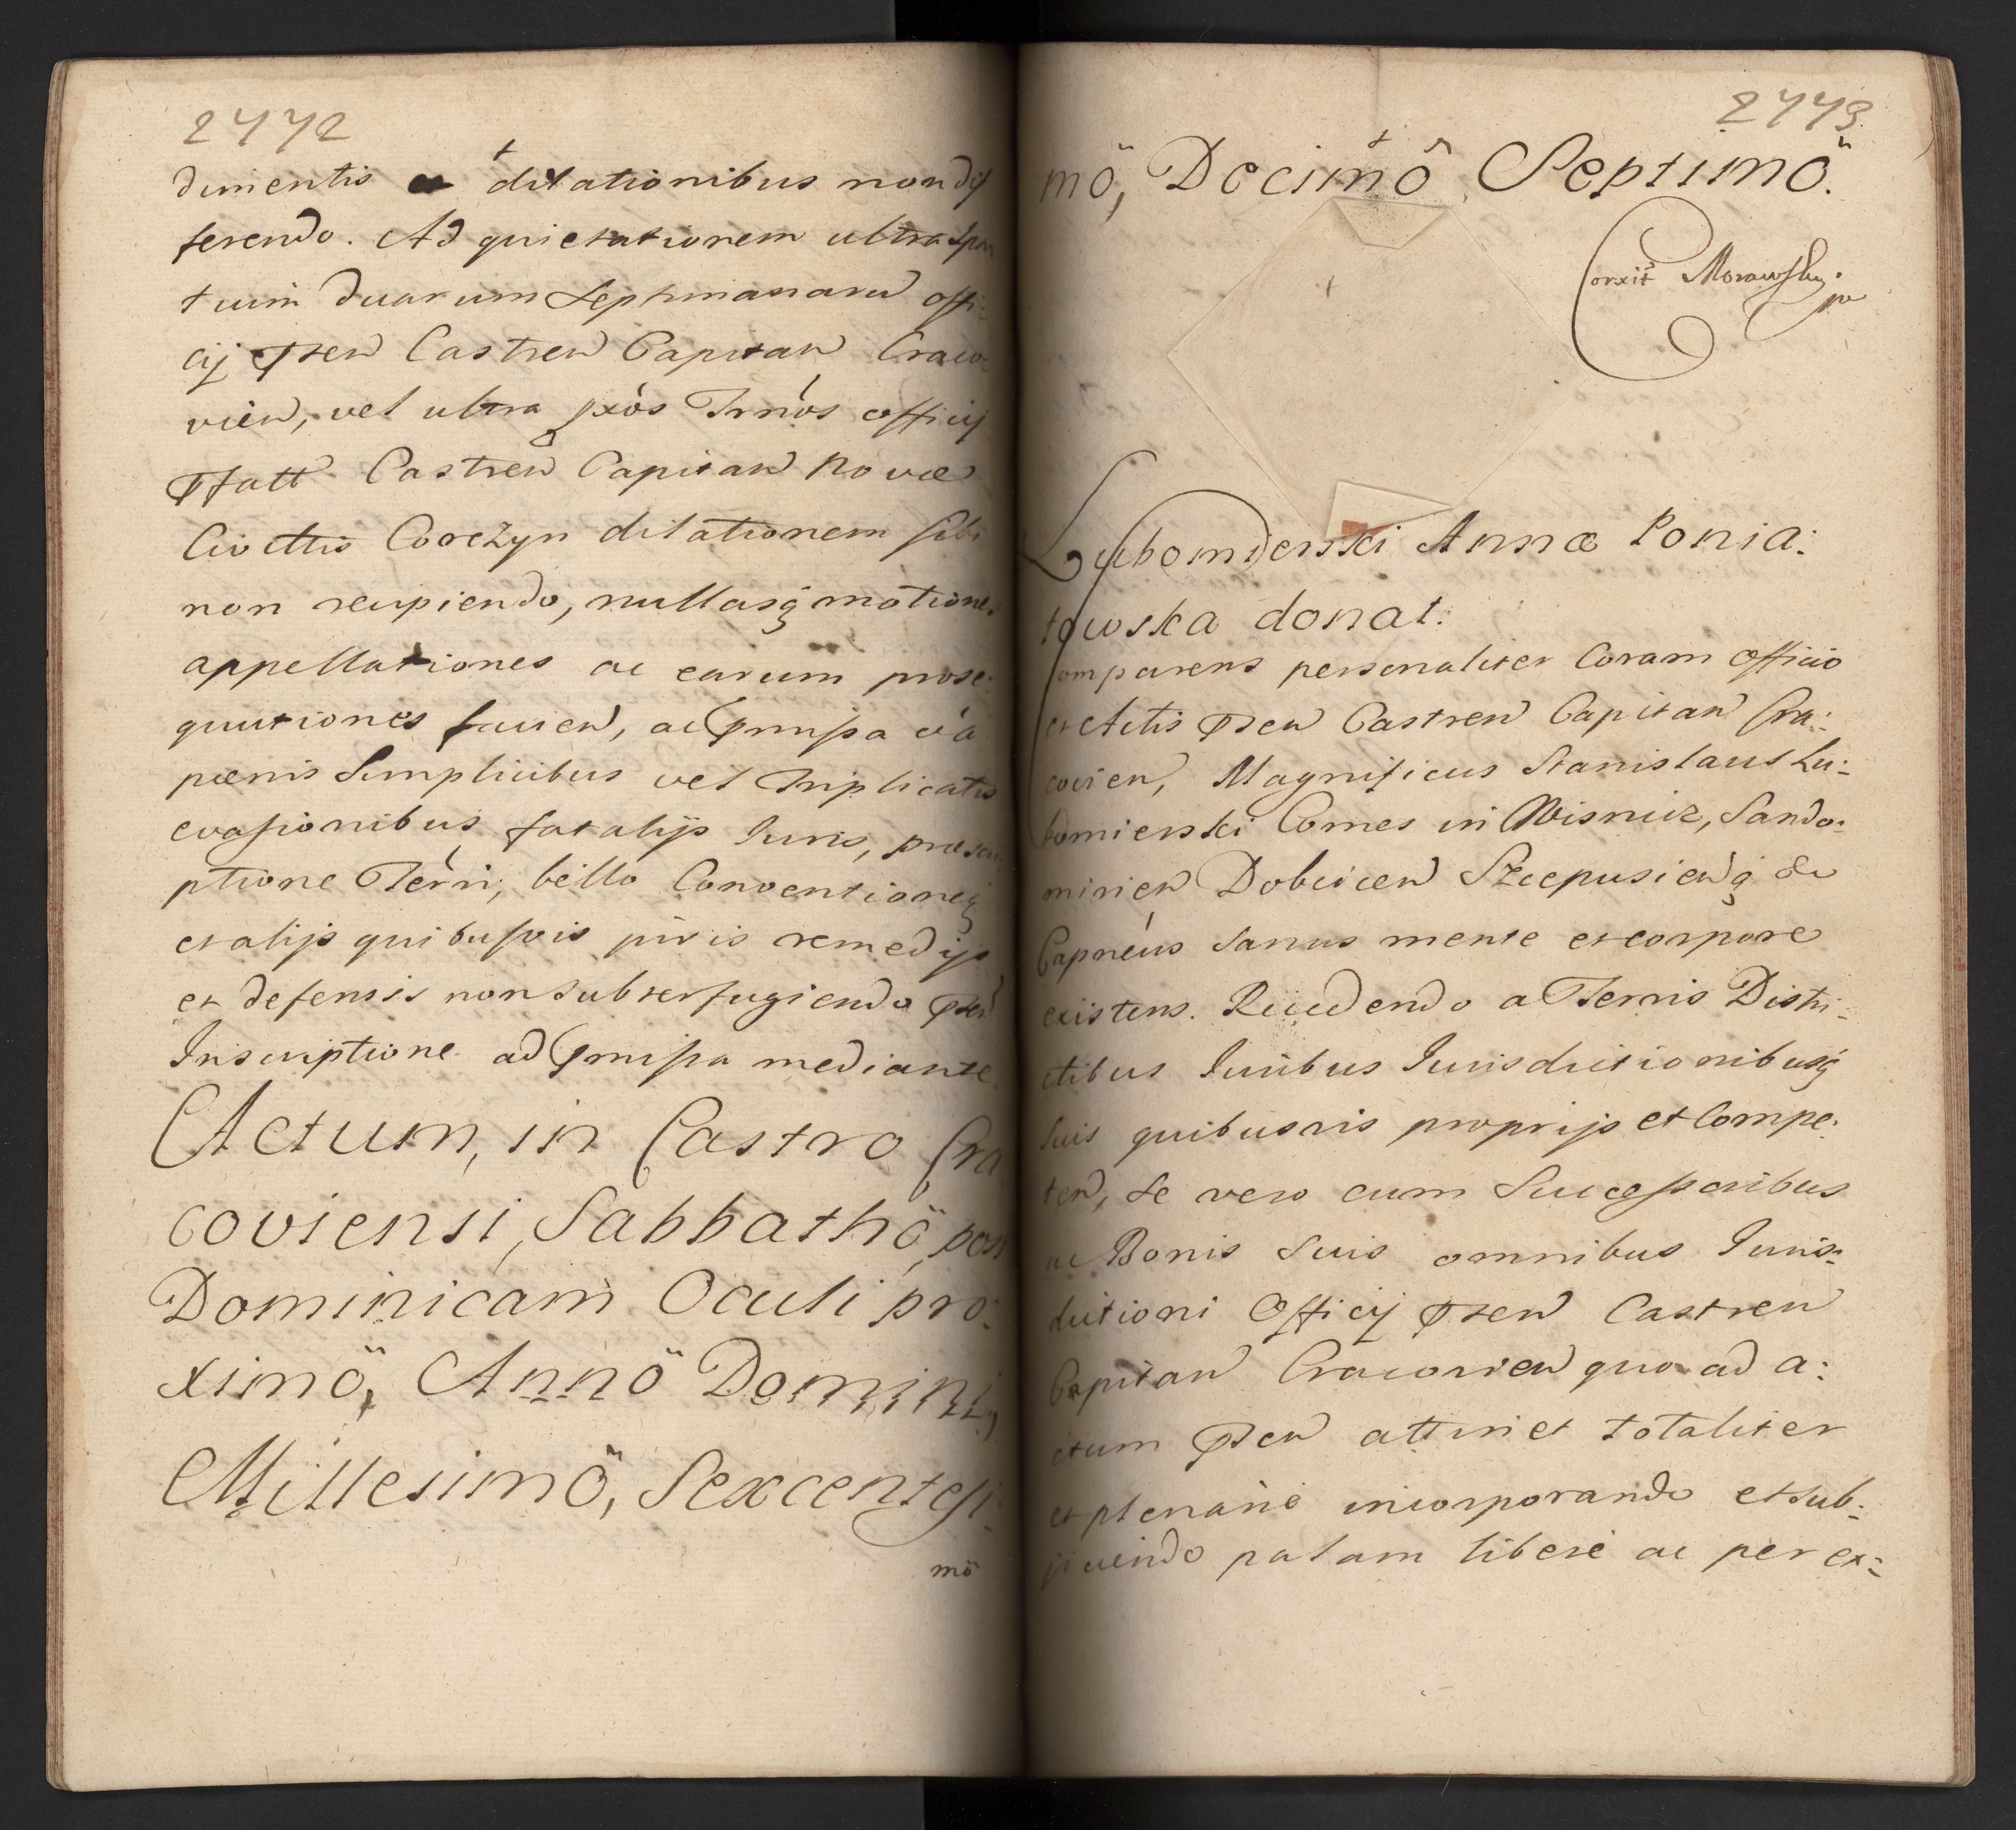 2772
dimentis dilationibus non dif
ferendo. Ad quietationem ultra spa
tium duarum Septimanarū offi:
cij pñen Castreñ Capitañ Craco
vień, vel ultra pxōs Trnōs officij
pfatt Castreñ Capitañ Novæ
Civittis Corczyn dilationem sibi
non recipiendo, nullasq motiones
appellationes ac earum prose:
quutiones facień, ac pmissa
pœnis Simplicibus vel triplicatis
evasionibus fatalijs Iuris, præscri
ptione Terri, bello Conventioneq
et alijs quibusvis juris remedijs
et defensis non subterfugiendo pñeñ
Inscriptione ad pmissa mediante.
Actum, in Castro Cra
coviensi, Sabbathô post
Dominicam Oculi pro:
ximô, Annô Domini,
Millesimô, Sexcentesi:
mô
2773
mô, Decimô Septimô.
Corxit Morawsky
Lubomierski Annæ Ponia:
towska donat.
Comparens personaliter Coram Officio
et Actis pñeń Castreń Capitań Cra:
covień, Magnificus Stanislaus Lu:
bomierski Comes in Wisnicz, Sando:
mirień Dobciceń Szcepusieńq &c
Capnēus Sanus mente et corpore
existens. Recedendo a Terris Distri:
ctibus Iuribus Iurisdictionibusq
suis quibusvis proprijs et Compe:
teń, se vero cum Successoribus
ac Bonis suis omnibus Iuris:
dictioni Officij pñeń Castreń
Capitań Cracovień quo ad a:
ctum pñeń attinet totaliter
et plenarie incorporando et sub:
jiciendo palam libere ac per ex: